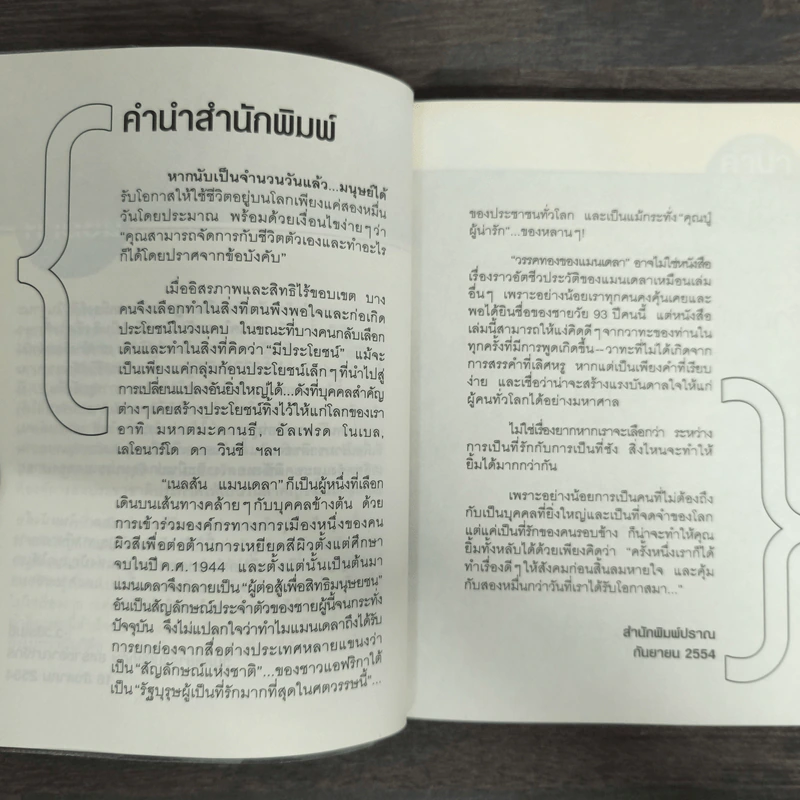 คำนำสำนักพิมพ์
หากนับเป็นจำนวนวันแล้ว...มนุษย์ได้
รับโอกาสให้ใช้ชีวิตอยู่บนโลกเพียงแค่สองหมื่น
วันโดยประมาณ พร้อมด้วยเงื่อนไขง่ายๆ ว่า
“คุณสามารถจัดการกับชีวิตตัวเองและทำอะไร
ก็ได้โดยปราศจากข้อบังคับ”
เมื่ออิสรภาพและสิทธิไร้ขอบเขต บาง
คนจึงเลือกทำในสิ่งที่ตนพึงพอใจและก่อเกิด
ประโยชน์ในวงแคบ ในขณะที่บางคนกลับเลือก
เดินและทำในสิ่งที่คิดว่า “มีประโยชน์” แม้จะ
เป็นเพียงแค่กลุ่มก้อนประโยชน์เล็กๆ ที่นำไปสู่
การเปลี่ยนแปลงอันยิ่งใหญ่ได้...ดังที่บุคคลสำคัญ
ต่างๆ เคยสร้างประโยชน์ทิ้งไว้ให้แก่โลกของเรา
อาทิ มหาตมะคานธี, อัลเฟรด โนเบล,
เลโอนาร์โด ดา วินชี ฯลฯ
“เนลสัน แมนเดลา” ก็เป็นผู้หนึ่งที่เลือก
เดินบนเส้นทางคล้ายๆ กับบุคคลข้างต้น ด้วย
การเข้าร่วมองค์กรทางการเมืองหนึ่งของคน
ผิวสีเพื่อต่อต้านการเหยียดสีผิวตั้งแต่ศึกษา
จบในปี ค.ศ. 1944 และตั้งแต่นั้นเป็นต้นมา
แมนเดลาจึงกลายเป็น “ผู้ต่อสู้เพื่อสิทธิมนุษยชน”
อันเป็นสัญลักษณ์ประจำตัวของชายผู้นี้จนกระทั่ง
ปัจจุบัน จึงไม่แปลกใจว่าทำไมแมนเดลาถึงได้รับ
การยกย่องจากสื่อต่างประเทศหลายแขนงว่า
เป็น “สัญลักษณ์แห่งชาติ”...ของชาวแอฟริกาใต้
เป็น “รัฐบุรุษผู้เป็นที่รักมากที่สุดในศตวรรษนี้”...
ของประชาชนทั่วโลก และเป็นแม้กระทั่ง “คุณปู่
ผู้น่ารัก”...ของหลานๆ!
“วรรคทองของแมนเดลา” อาจไม่ใช่หนังสือ
เรื่องราวอัตชีวประวัติของแมนเดลาเหมือนเล่ม
อื่นๆ เพราะอย่างน้อยเราทุกคนคงคุ้นเคยและ
พอได้ยินชื่อของชายวัย 93 ปีคนนี้ แต่หนังสือ
เล่มนี้สามารถให้แง่คิดดีๆ จากวาทะของท่านใน
ทุกครั้งที่มีการพูดเกิดขึ้น--วาทะที่ไม่ได้เกิดจาก
การสรรคำที่เลิศหรู หากแต่เป็นเพียงคำที่เรียบ
ง่าย และเชื่อว่าน่าจะสร้างแรงบันดาลใจให้แก่
ผู้คนทั่วโลกได้อย่างมหาศาล
ไม่ใช่เรื่องยากหากเราจะเลือกว่า ระหว่าง
การเป็นที่รักกับการเป็นที่ชัง สิ่งไหนจะทำให้
ยิ้มได้มากกว่ากัน
เพราะอย่างน้อยการเป็นคนที่ไม่ต้องถึง
กับเป็นบุคคลที่ยิ่งใหญ่และเป็นที่จดจำของโลก
แต่แค่เป็นที่รักของคนรอบข้าง ก็น่าจะทำให้คุณ
ยิ้มทั้งหลับได้ด้วยเพียงคิดว่า “ครั้งหนึ่งเราก็ได้
ทำเรื่องดีๆ ให้สังคมก่อนสิ้นลมหายใจ และคุ้ม
กับสองหมื่นกว่าวันที่เราได้รับโอกาสมา...”
สำนักพิมพ์ปราณ
กันยายน 2554